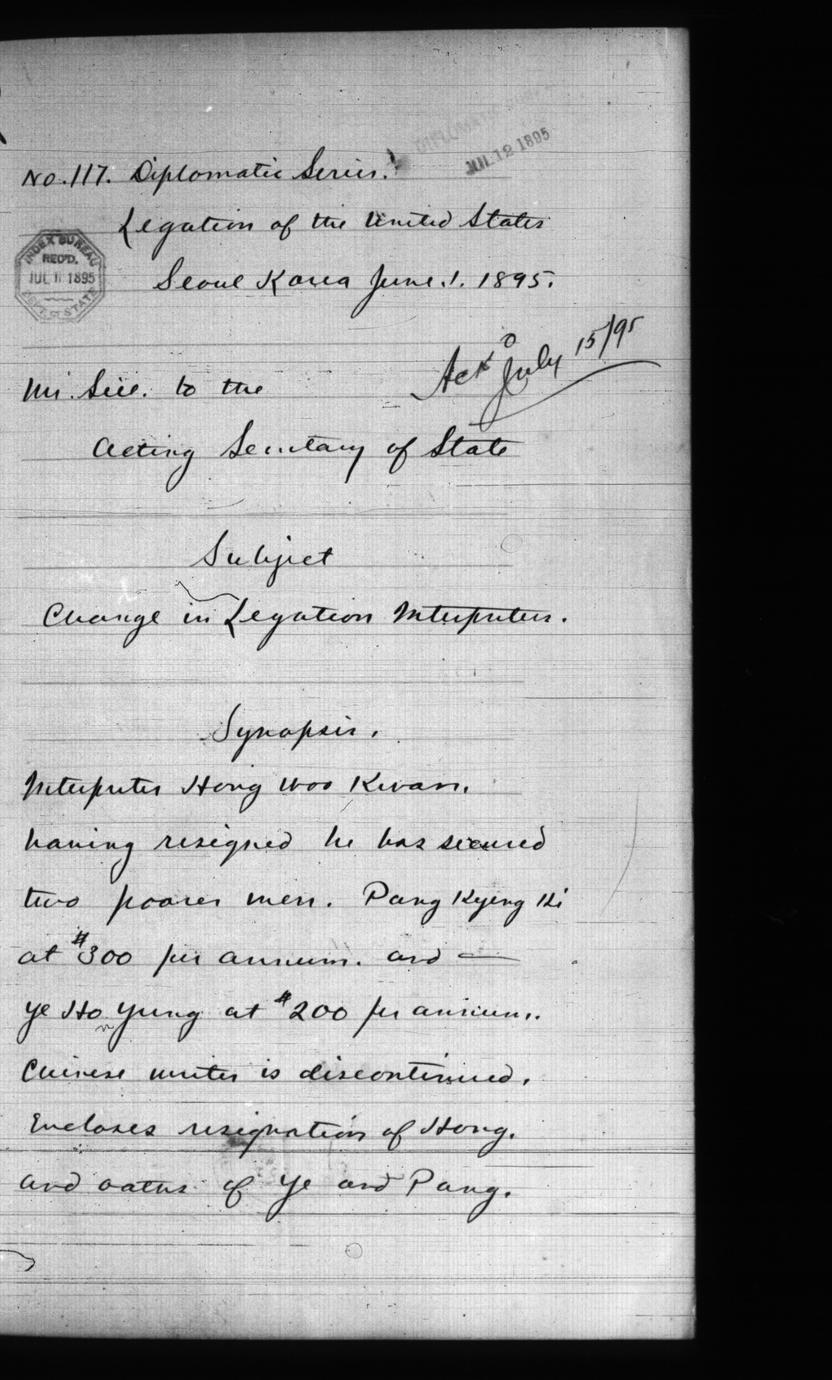 DIPLOMATIC BUREAU
JUL 12 1895
No. 117. Diplomatic Series.
Legation of the United States
INDEX BUREAU
REC'D.
JUL 11 1895
DEPT. OF STATE
Seoul Korea June. 1. 1895.
Ackd July 15/95
Mr. Sill. to the
Acting Secretary of State
Subject
Change in Legation Interpreters.
Synopsis.
Interpreter Hong Woo Kwan.
having resigned he has secured
two poorer men. Pang Kyeng Hi
at $300 per annum. and —
Ye Ho Yung at $200 per annum.
Chinese writer is discontinued.
Encloses resignation of Hong.
and oaths of Ye and Pang.